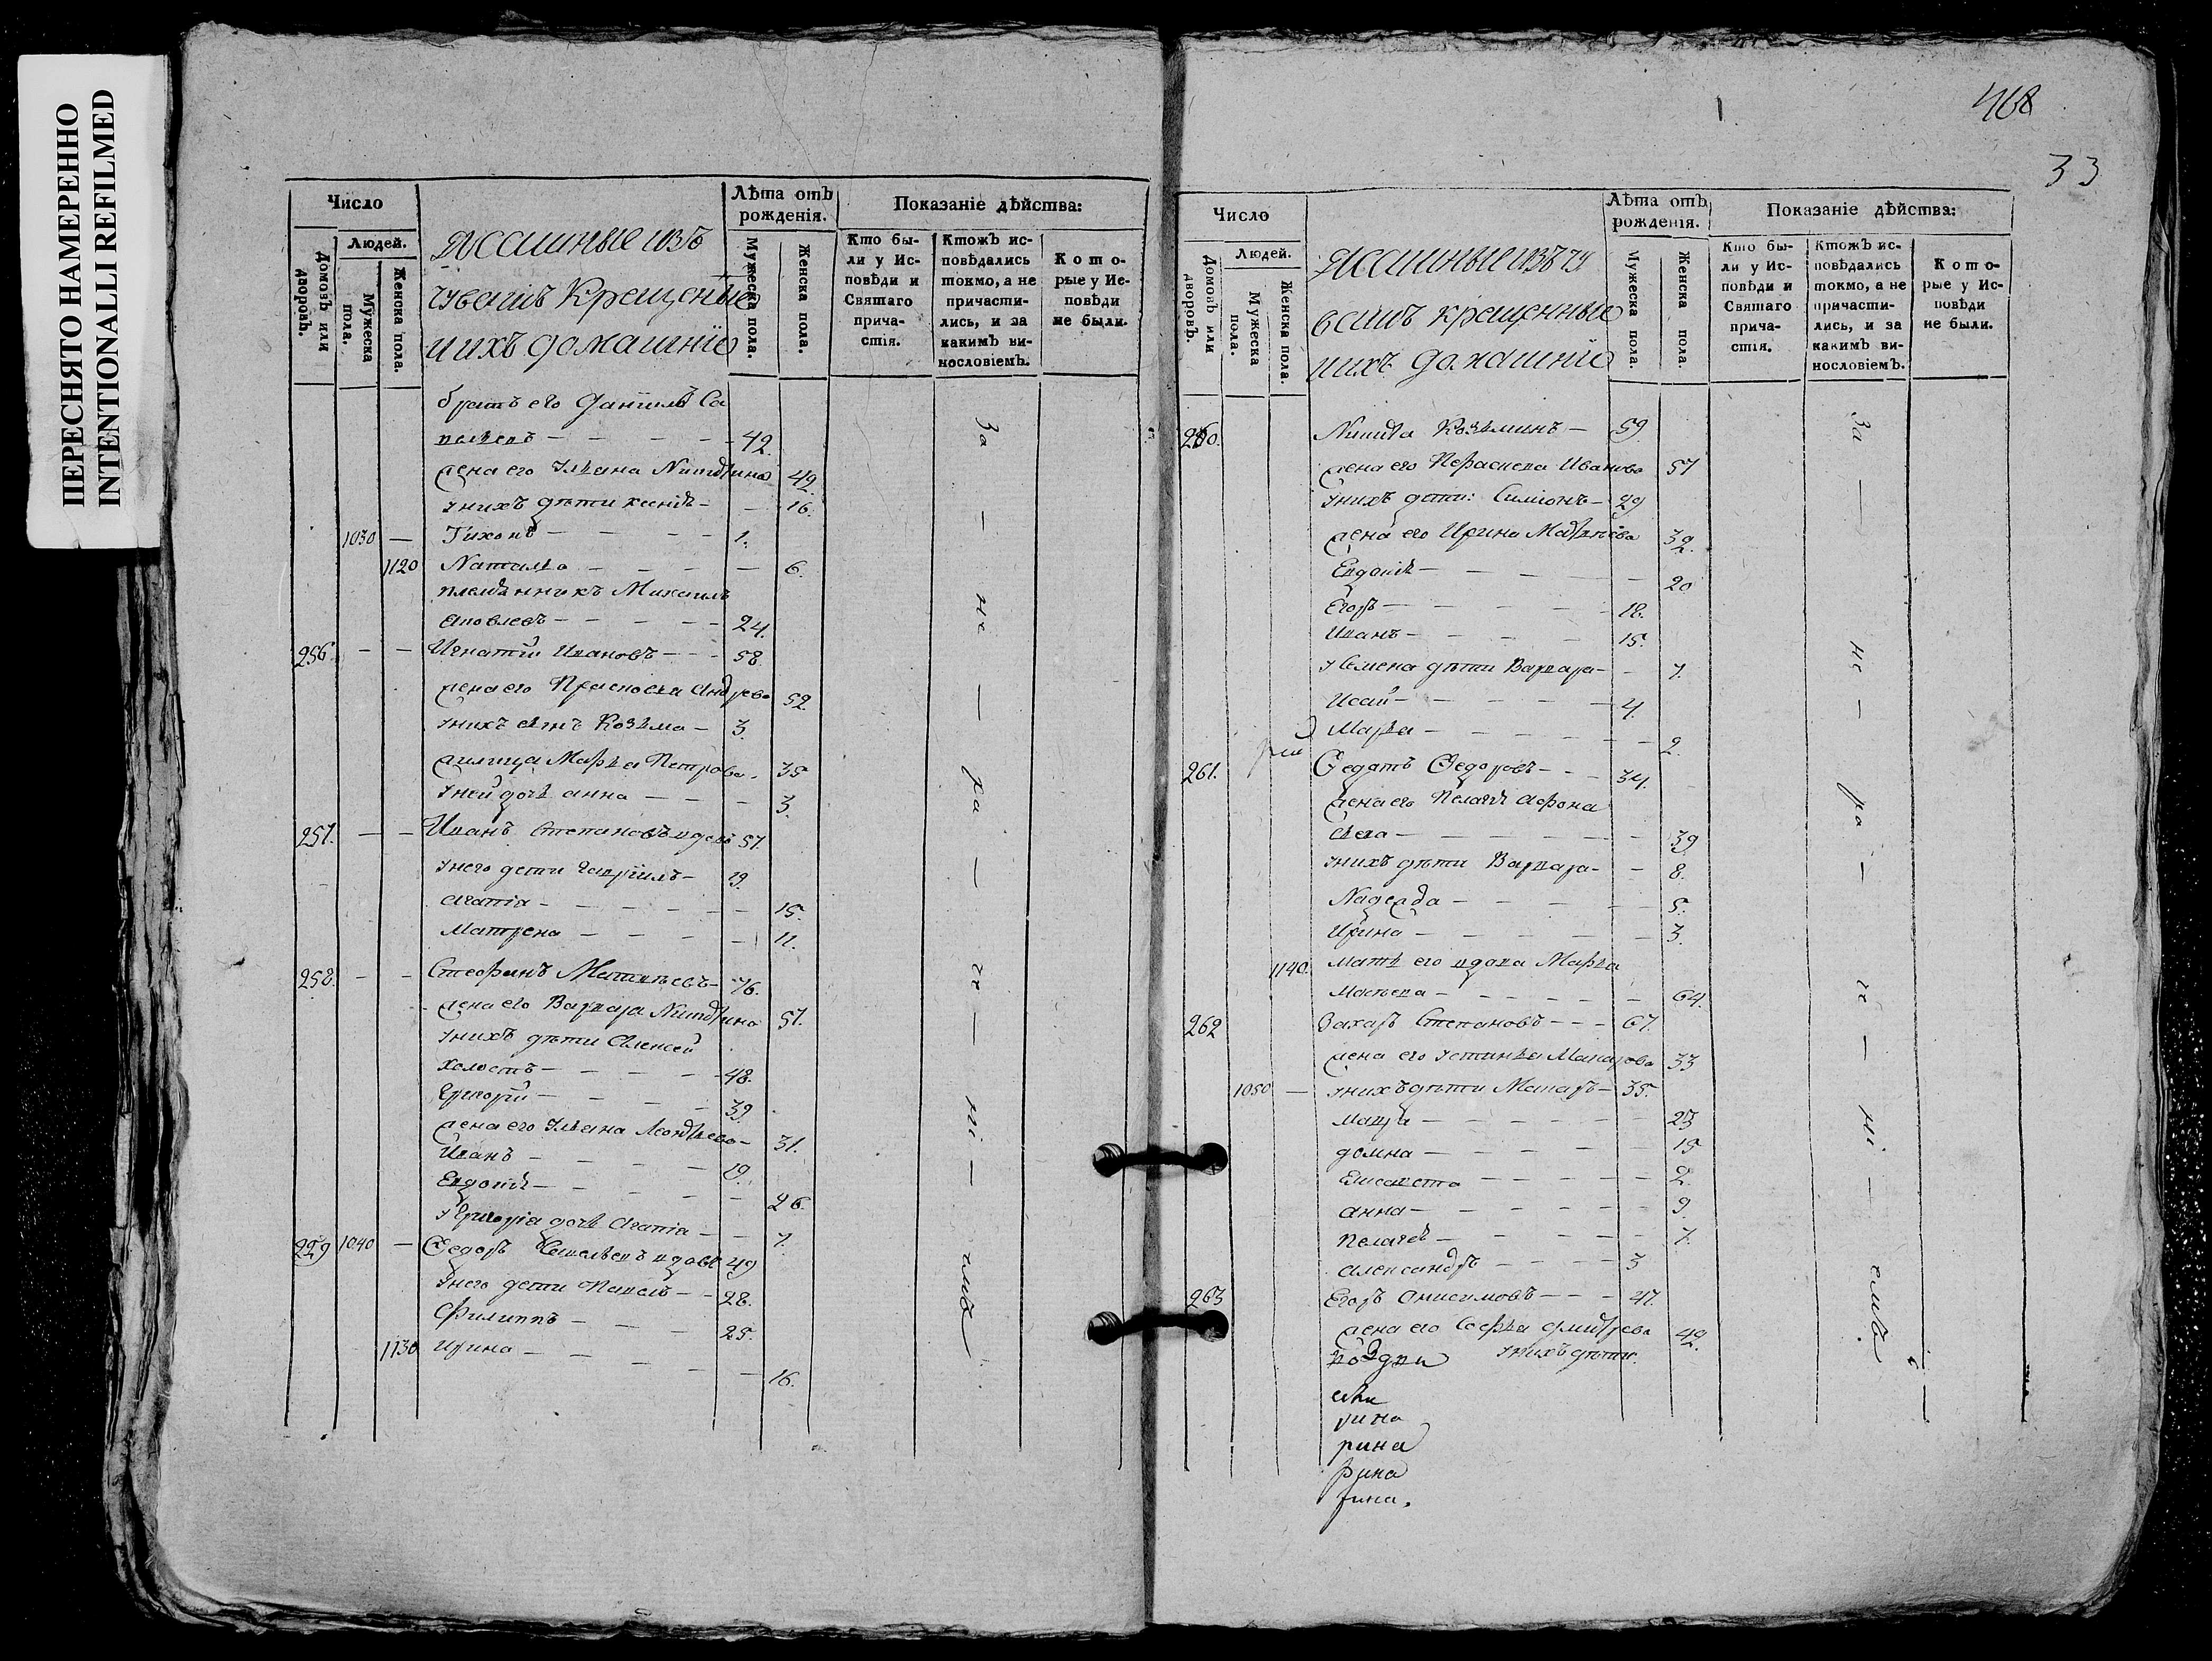 ПЕРЕСНЯТО НАМЕРЕННО
INTENTIONALLI REFILMED
Число
Людей.
Домовъ или дворовъ.
Мужеска пола.
Женска пола.
Ясашные изъ
чувашъ Крещеные
и ихъ домашніе
Лѣта отъ рожденія.
Мужеска пола.
Женска пола.
Показаніе дѣйства:
Кто бы-
ли у Ис-
повѣди и
Святаго
прича-
стія.
Ктожъ ис-
повѣдались
токмо, а не
причасти-
лись, и за
какимъ ви-
нословіемъ.
Кото-
рые у Ис-
повѣди
не были.
братъ его Данiилъ Са
42.
жена его Ульяна Никитина 42.
у нихъ дѣти Ксенiя 16.
1030 — Тихонъ 1.
1120 Наталья 6.
племянникъ Михаилъ
Яковлевъ 24.
256 — — Игнатiй Ивановъ 58.
жена его Прасковья Андреева 52.
у нихъ сынъ Козьма 3.
Марья Петрова 35
у ней дочь анна 3.
257. — — Иванъ Степановъ вдовъ 57.
у него дети Гаврiилъ 19.
Агапiя 15.
Матрена 11.
258. — — Стефанъ Матвѣевъ 76.
жена его Варвара Никитина 57.
у нихъ дѣти Алексей
холостъ 48.
Григорiй 39.
жена его Ульяна Леонтьева 31.
Иванъ 19.
Евдокiя 26.
у Григорiя дочь Агапiя 7.
259 1040 — Федоръ Савельевъ вдовъ 49
у него дети Павелъ 28.
Филиппъ 25.
1130 Ирина 16.
За — не — ра — че — ні — емъ
468
33
Число
Людей.
Домовъ или дворовъ.
Мужеска пола.
Женска пола.
Ясашные изъ чу
вашъ крещенные
и ихъ домашніе
Лѣта отъ рожденія.
Мужеска пола.
Женска пола.
Показаніе дѣйства:
Кто бы-
ли у Ис-
повѣди и
Святаго
прича-
стія.
Ктожъ ис-
повѣдались
токмо, а не
причасти-
лись, и за
какимъ ви-
нословіемъ.
Кото-
рые у Ис-
повѣди
не были.
260. Никита Козьминъ 59.
жена его Пераскева Иванова 57
у нихъ дети: Симiонъ 29
жена его Ирина Матвѣева 32.
Евдокiя 20
Егоръ 18.
Иванъ 15.
у Семена дѣти Варвара 7.
Исай 4.
Марья 2.
261. Федотъ Федоровъ 34.
жена его Пелагiя Афона
сьева 39
у нихъ дѣти Варвара 8.
Надежда 5.
Ирина 3.
1140. мать его вдова Марья
64.
262 Захаръ Степановъ 67.
жена его Устинья Макарова 33
1050 — у нихъ дѣти Макаръ 35.
23
домна 15
Елисавета 2.
анна 9
Пелагея 7.
александръ 3
263 Егоръ Анисимовъ 47.
жена его Софья Дмитрева 42.
у нихъ дѣти.
рина
рина
рина
рина.
За — не — ра — че — ні — емъ.